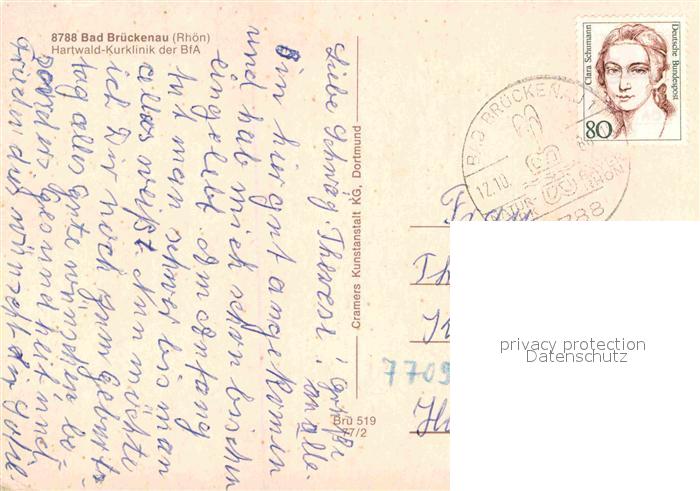 8788 Bad Brückenau (Rhön)
Hartwald-Kurklinik der BfA
Liebe Schwäg. Therese!
Bin hir gut angekomin
und hab mich schon bischn
eingelebt. Am Anfang
tut man schwer bis man
alles weißt. Nun möchte
ich Dir noch zum Geburts-
tag alles gute wünschen be-
sonders Gesundheit und
Frieden das wünscht dir
Grüße
an alle.
Cramers Kunstanstalt KG, Dortmund
Brü 519
77/2
Clara Schumann
Deutsche Bundespost
80
BAD BRÜCKENAU 1
12.10.
NATUR
RHÖN
788
Frau
Th
7709
privacy protection
Datenschutz